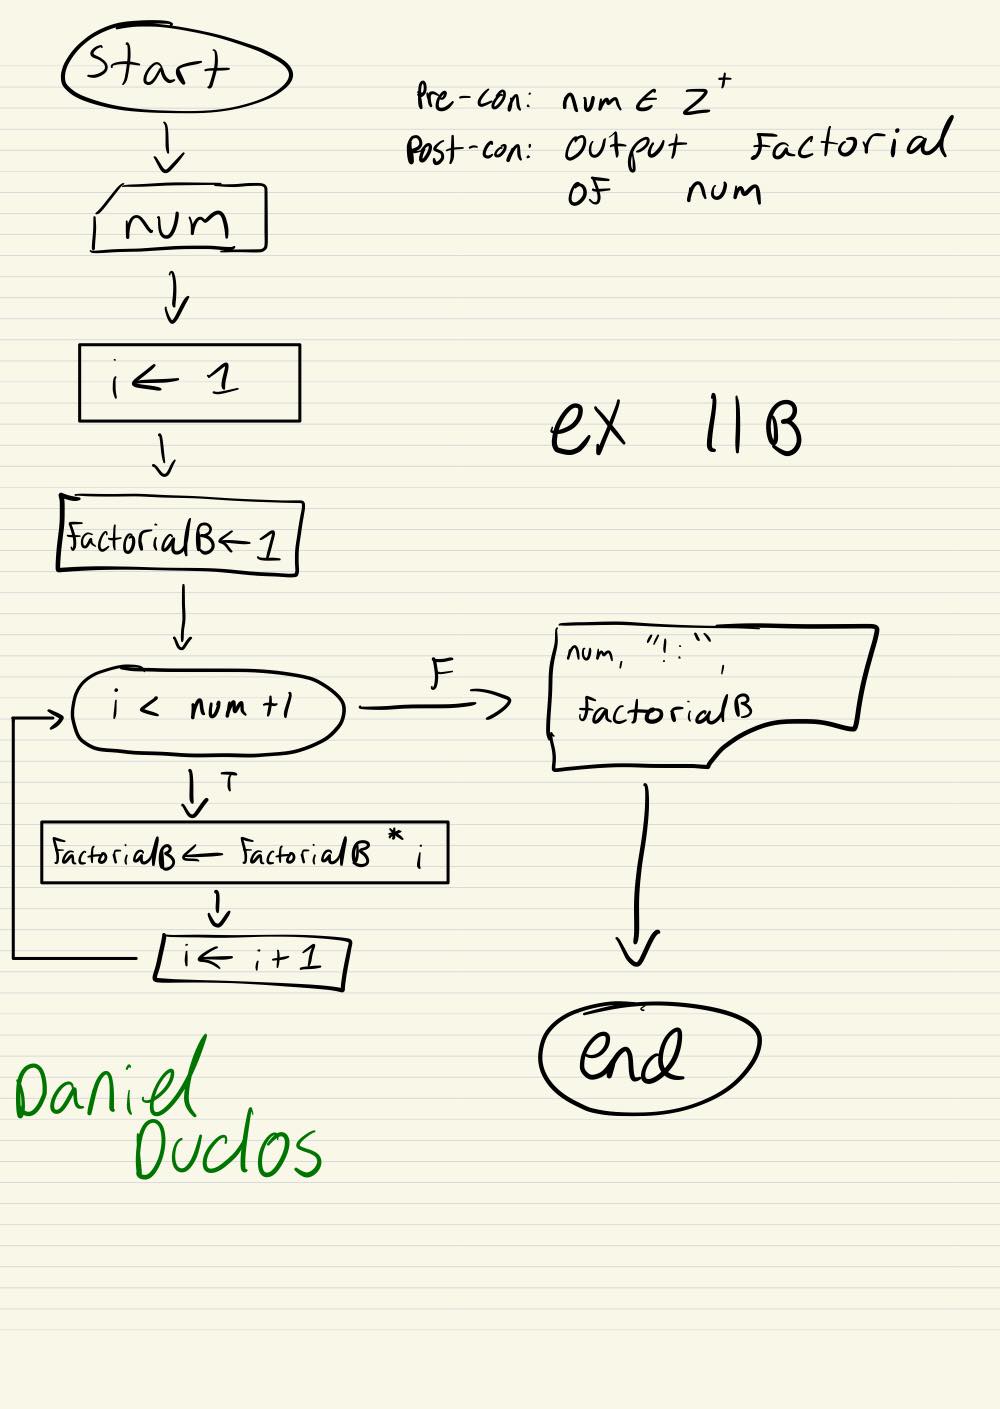 Start
Pre-con: num ∈ Z⁺
Post-con: output factorial
of num
num
i ← 1
ex 11B
factorialB ← 1
i < num + 1
F
num, "!: ",
factorialB
T
factorialB ← factorialB * i
i ← i + 1
end
Daniel
Duclos